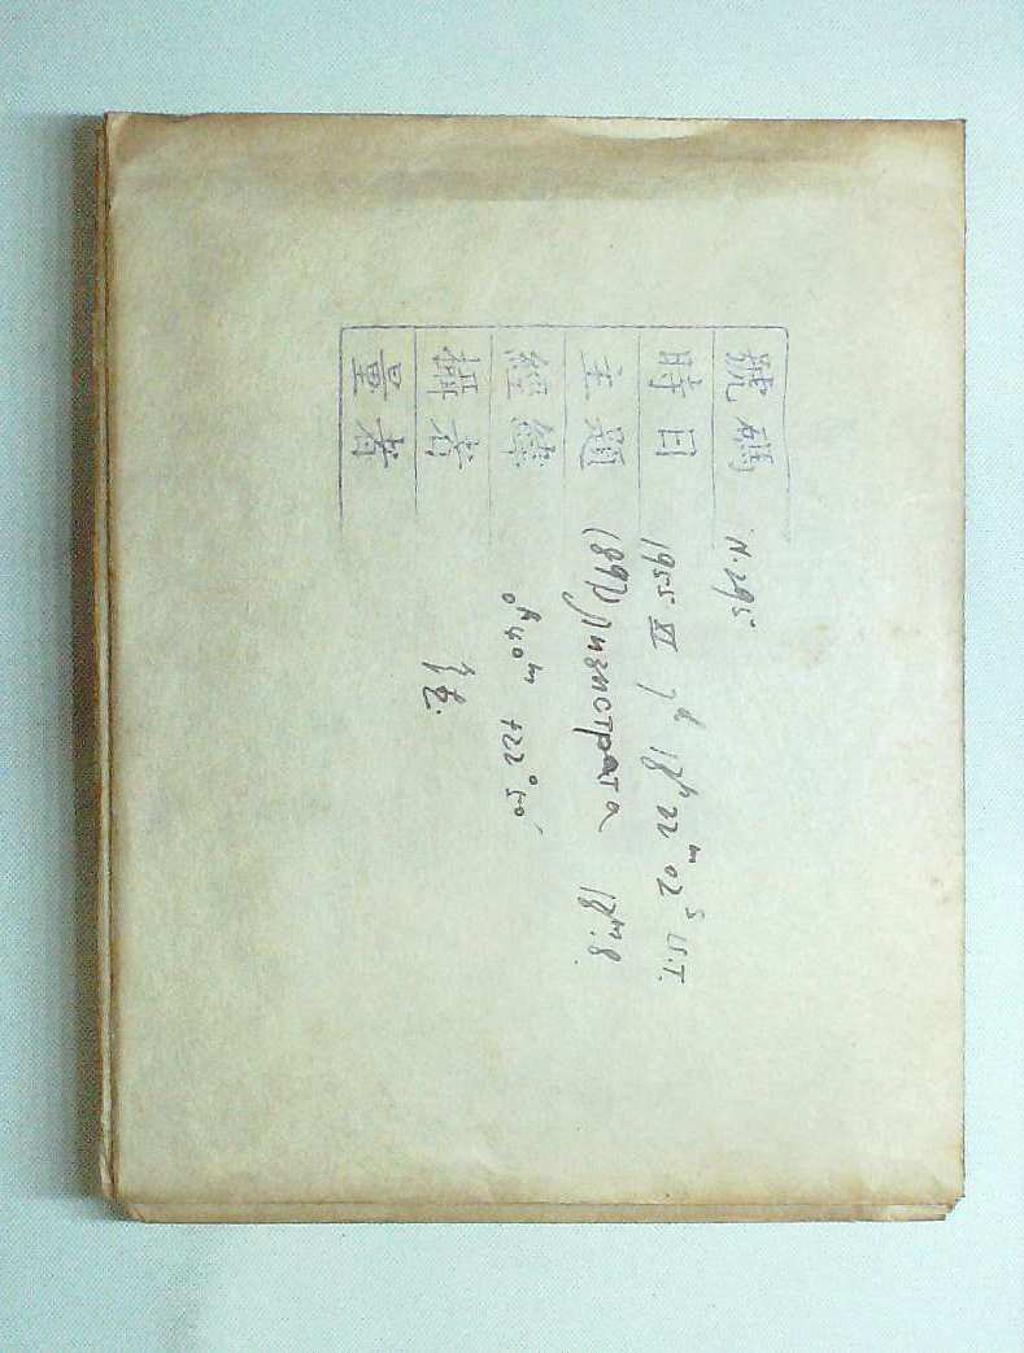 號碼 N. 295
時日 1955 XI 7ᵈ 18ʰ 22ᵐ 02ˢ U.T.
主題 (897) Лизистрата
經緯 40ᵐ +22°50′
攝者
量者